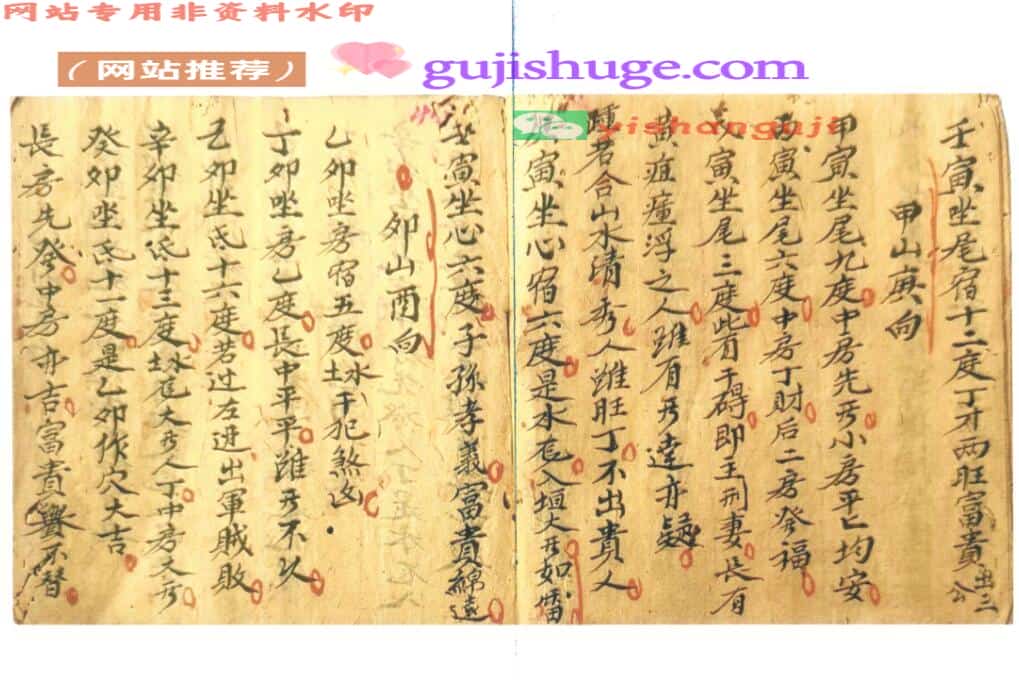 网站专用非资料水印
（网站推荐）
gujishuge.com
yishanguji
壬寅坐尾宿十二度丁才两旺富貴出三公
甲山庚向
甲寅坐尾九度中房先发小房平亡均安
寅坐尾六度中房丁财后二房癸福
寅坐尾三度皆干碍即王刑妻長有
黄疸瘇浮之人雖有发達亦疑
瘇若合山水清秀人雖旺丁不出貴人
庚寅坐心宿六度是水危入垣大发如雷
壬寅坐心六度子孫孝義富貴綿遠
卯山酉向
乙卯坐房宿五度水土干犯煞凶
丁卯坐房乙度長中平平雖发不久
己卯坐氐十六度若过左进出軍賊敗
辛卯坐氐十三度水土危大发人丁中房大发
癸卯坐氐十一度是乙卯作穴大吉
長房先癸中房亦吉富貴不替